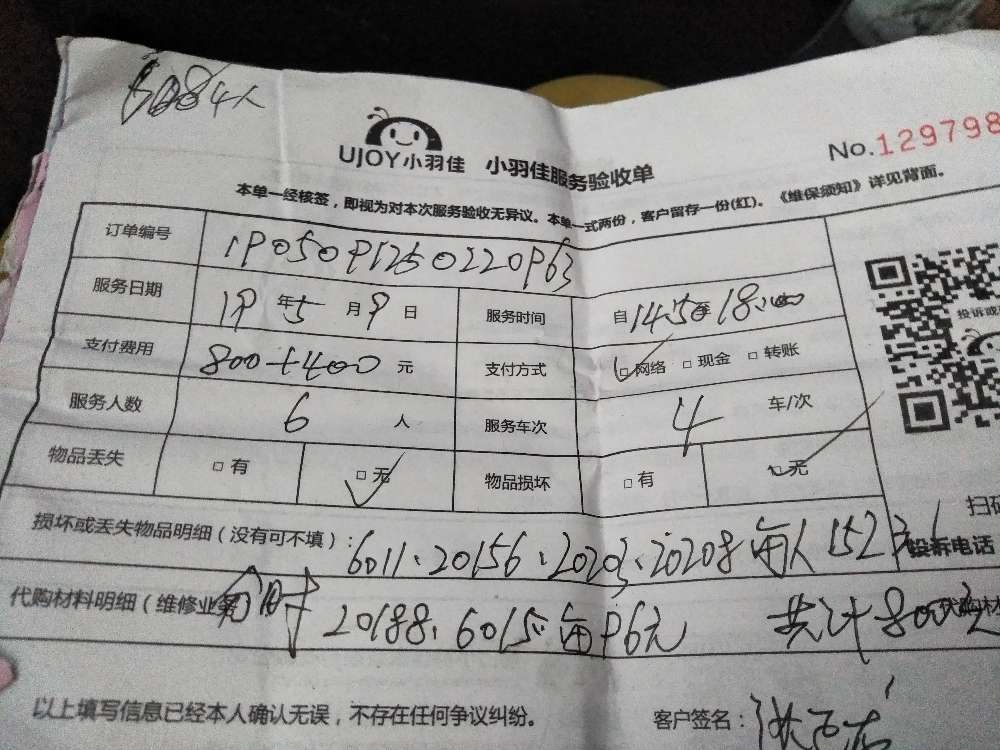 4人
UJOY小羽佳 小羽佳服务验收单 No.129798
本单一经核签，即视为对本次服务验收无异议。本单一式两份，客户留存一份(红)。《维保须知》详见背面。
订单编号 190509125022096
服务日期 19 年 5 月 9 日 服务时间 自 至 18:00
投诉或
支付费用 800+400 元 支付方式 □网络 □现金 □转账
服务人数 6 人 服务车次 4 车/次
物品丢失 □有 □无 物品损坏 □有 □无
扫码
损坏或丢失物品明细（没有可不填）: 6011、20156、20203、20208 每人152元
投诉电话
代购材料明细（维修业务） 20188、6015 每 96元 共计800元
代购材
以上填写信息已经本人确认无误，不存在任何争议纠纷。 客户签名：